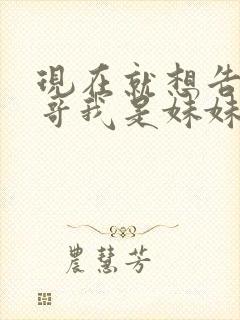 現在就想告
哥我是妹妹
農慧芳